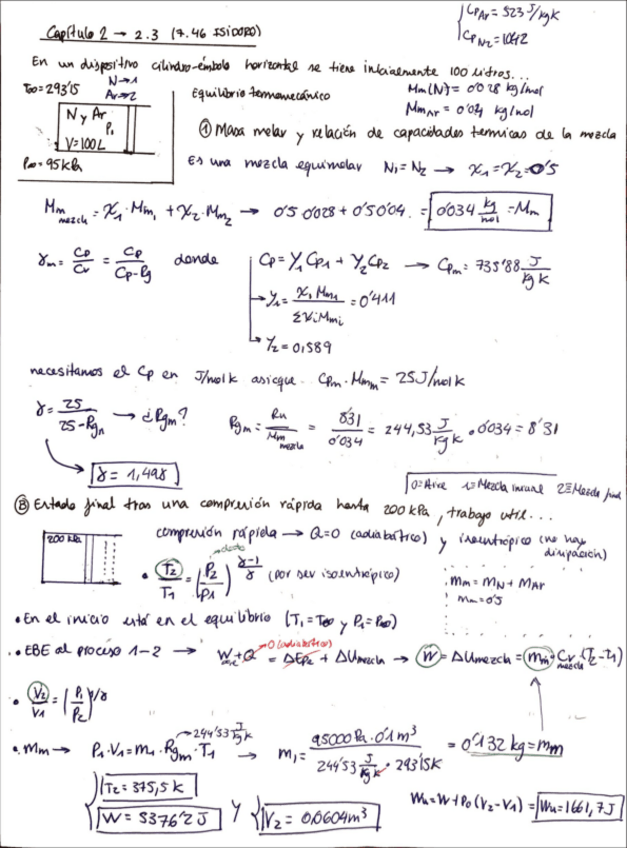 Capítulo 2 → 2.3 (7.46 ISIDORO)
{CpAr = 523 J/kgK
CpN2 = 1042
En un dispositivo cilindro-émbolo horizontal se tiene inicialmente 100 litros...
T∞ = 293'15
N → 1
Ar → 2
N y Ar
P1
V = 100L
P∞ = 95 kPa
Equilibrio termomecánico
Mm(N) = 0'028 kg/mol
MmAr = 0'04 kg/mol
① Masa molar y relación de capacidades termicas de la mezcla
Es una mezcla equimolar N1 = N2 → x1 = x2 = 0'5
Mm mezcla = x1 · Mm1 + x2 · Mm2 → 0'5 0'028 + 0'5 0'04. = 0'034 kg/mol = Mm
γm = Cp/Cv = Cp/(Cp-Rg) donde
Cp = Y1 Cp1 + Y2 Cp2 → Cpm = 735'88 J/kg K
→ Y1 = x1 Mm1/Σxi Mmi = 0'411
→ Y2 = 0,589
necesitamos el Cp en J/molK asi que Cpm · Mmm = 25 J/mol K
γ = 25/(25-Rgm) → ¿Rgm?
Rgm = Ru/Mm mezcla = 8'31/0'034 = 244,53 J/kg K · 0'034 = 8'31
γ = 1,498
0≡Aire 1≡Mezcla inicial 2≡Mezcla final
② Estado final tras una compresión rápida hasta 200 kPa, trabajo util...
200 kPa
compresión rápida → Q=0 (adiabático) y isoentrópico (no hay disipación)
• T2/T1 = (P2/P1)^((γ-1)/γ) (por ser isoentrópico)
dato
mm = mN + mAr
• En el inicio está en el equilibrio (T1 = T∞ y P1 = P∞)
• EBE al proceso 1-2 → W + Q = ΔEpz + ΔUmezcla → W = ΔUmezcla = mm · Cv mezcla (T2-T1)
0 (adiabático)
• V2/V1 = (P1/P2)^(1/γ)
• Mm → P1 · V1 = m1 · Rgm · T1 → m1 = 95000 Pa · 0'1 m³/(244'53 J/kg K · 293'15K) = 0'132 kg = mm
244'53 J/kg K
{T2 = 375,5 K
W = 5376'2 J y V2 = 0,0604 m³
Wu = W + P0 (V2 - V1) = Wu = 1661,7 J